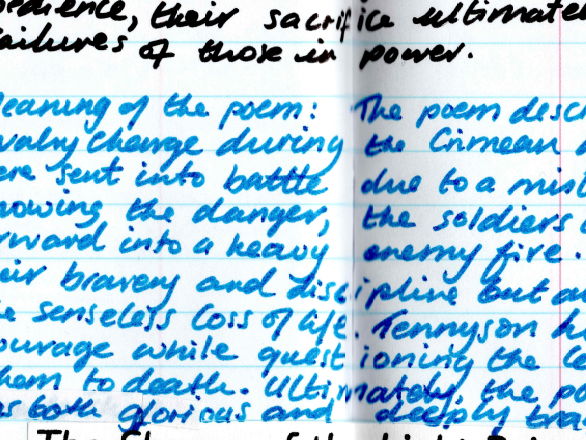 edience, their sacrifice ultimate
failures of those in power.
eaning of the poem: The poem desc
valry Charge during the Crimean
ere sent into battle due to a mist
nowing the danger, the soldiers
rward into a heavy enemy fire.
eir bravery and discipline but a
e senseless loss of life. Tennyson h
ourage while questioning the
hem to death. Ultimately, the po
as both glorious and deeply tra